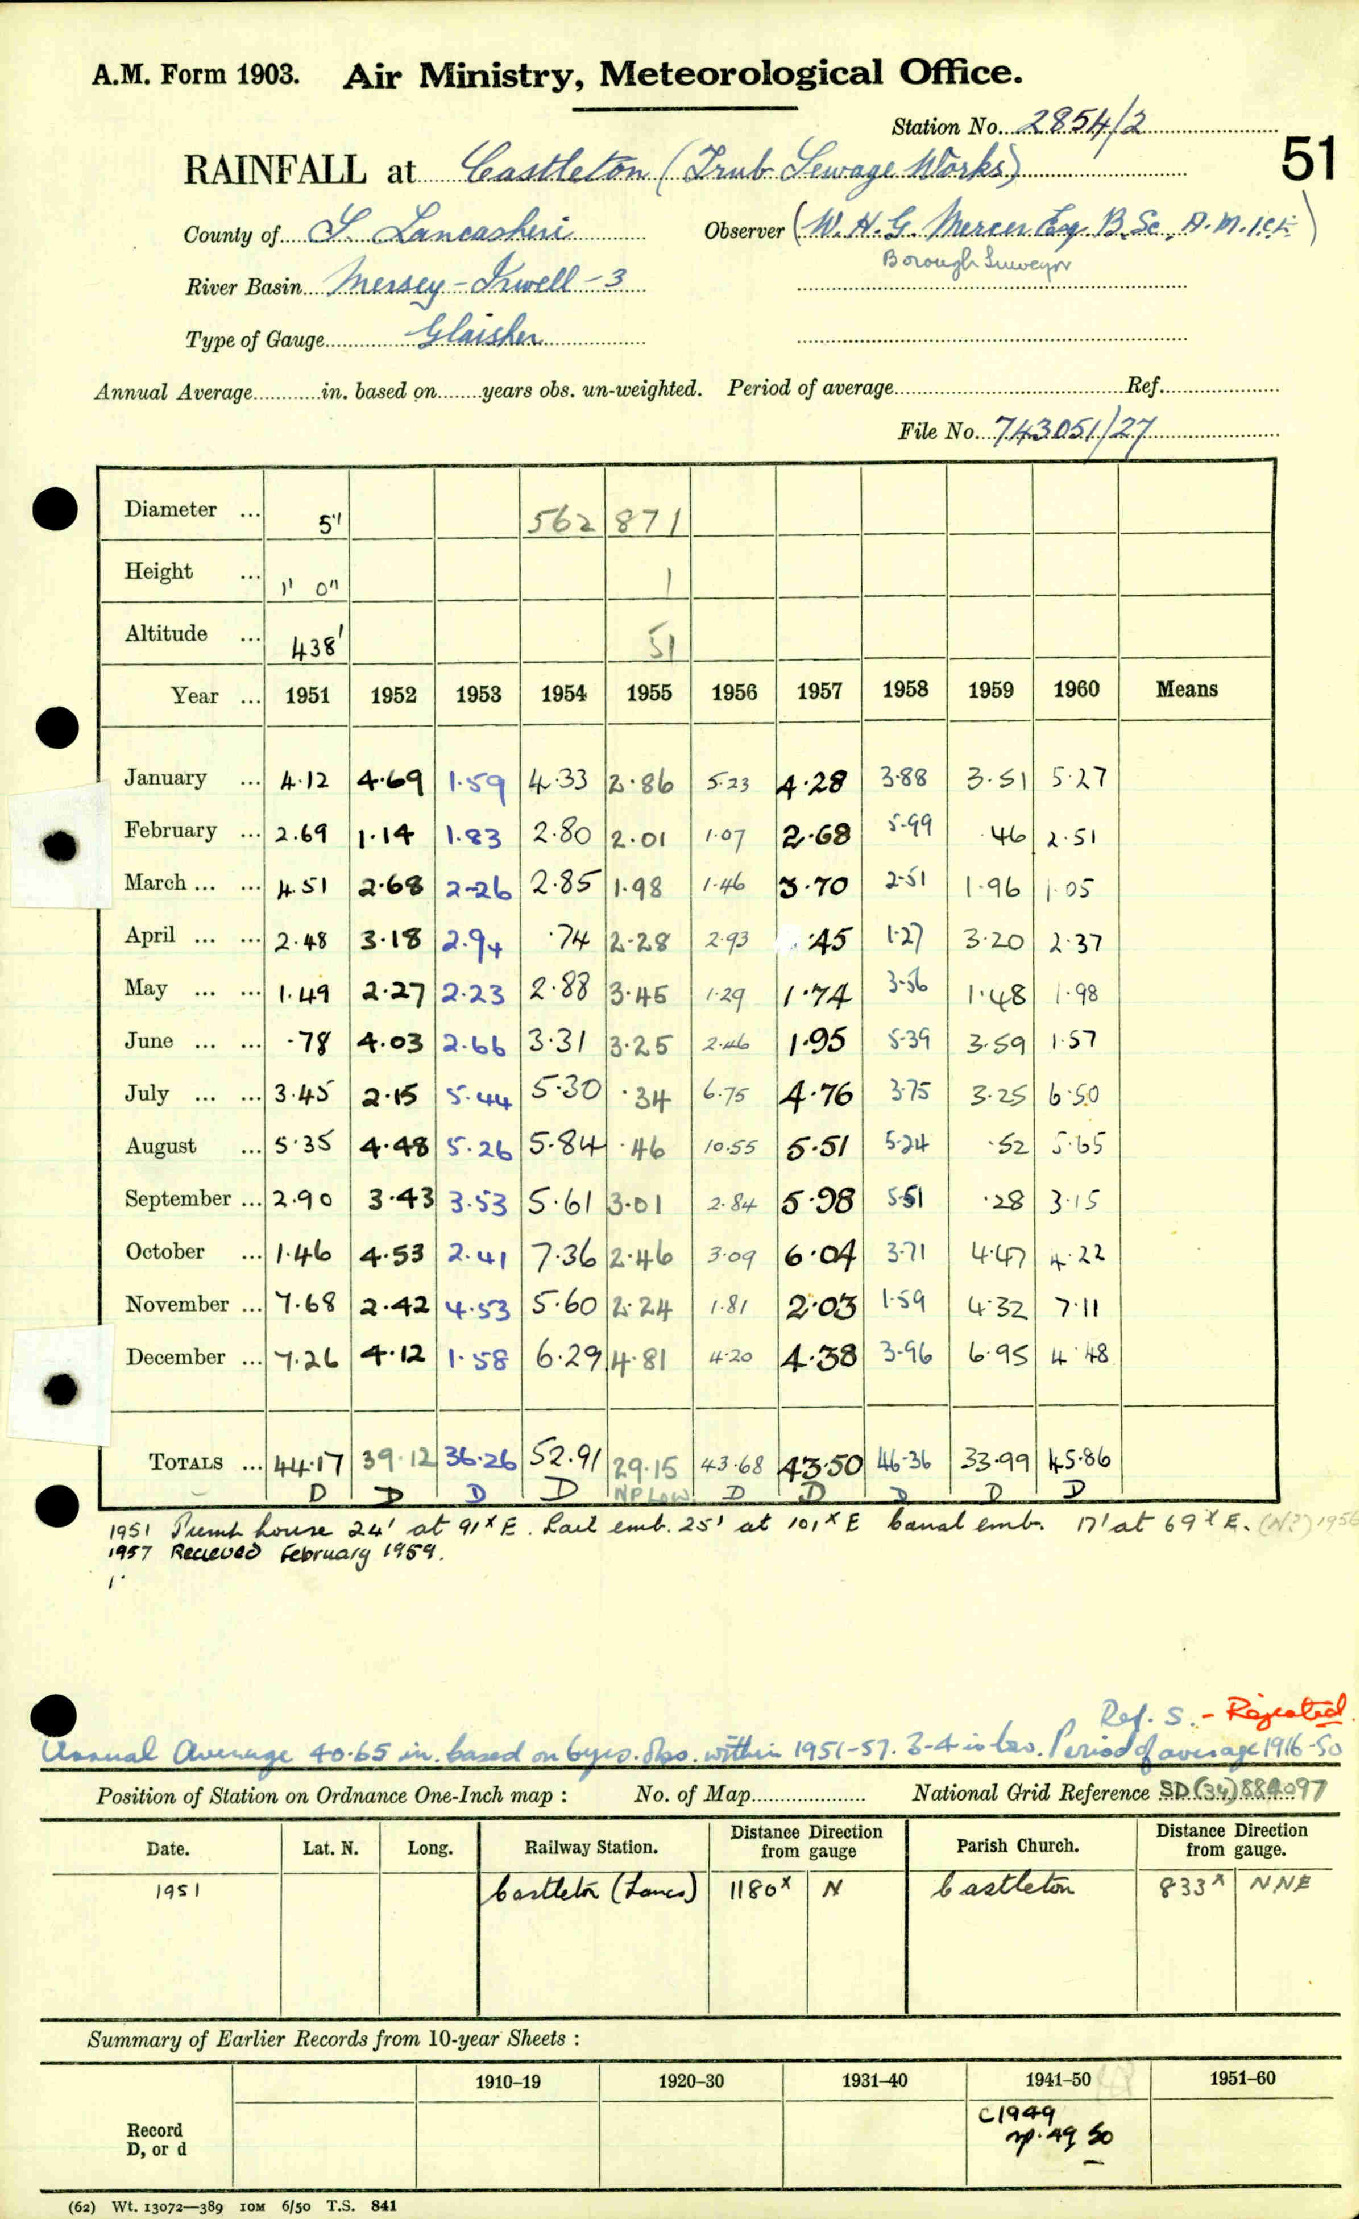 A.M. Form 1903. Air Ministry, Meteorological Office.
Station No. 2854/2
RAINFALL at Castleton (Trub Sewage Works) 51
County of S. Lancashire Observer (W. H. G. Mercer Esq. B.Sc., A.M.I.C.E.)
Borough Surveyor
River Basin Mersey - Irwell - 3
Type of Gauge Glaisher
Annual Average in. based on years obs. un-weighted. Period of average Ref.
File No. 743051/27
Diameter ... 5" 562 871
Height ... 1' 0" 1
Altitude ... 438' 51
Year ... 1951 1952 1953 1954 1955 1956 1957 1958 1959 1960 Means
January ... 4.12 4.69 1.59 4.33 2.86 5.23 4.28 3.88 3.51 5.27
February ... 2.69 1.14 1.83 2.80 2.01 1.07 2.68 5.99 .46 2.51
March ... ... 4.51 2.68 2.26 2.85 1.98 1.46 3.70 2.51 1.96 1.05
April ... ... 2.48 3.18 2.94 .74 2.28 2.93 .45 1.27 3.20 2.37
May ... ... 1.49 2.27 2.23 2.88 3.45 1.29 1.74 3.56 1.48 1.98
June ... ... .78 4.03 2.66 3.31 3.25 2.46 1.95 5.39 3.59 1.57
July ... ... 3.45 2.15 5.44 5.30 .34 6.75 4.76 3.75 3.25 6.50
August ... 5.35 4.48 5.26 5.84 .46 10.55 5.51 5.24 .52 5.65
September ... 2.90 3.43 3.53 5.61 3.01 2.84 5.98 5.51 .28 3.15
October ... 1.46 4.53 2.41 7.36 2.46 3.09 6.04 3.71 4.47 4.22
November ... 7.68 2.42 4.53 5.60 2.24 1.81 2.03 1.59 4.32 7.11
December ... 7.26 4.12 1.58 6.29 4.81 4.20 4.38 3.96 6.95 4.48
TOTALS ... 44.17 39.12 36.26 52.91 29.15 43.68 43.50 46.36 33.99 45.86
D D D D NP Low D D D D D
1951 Pump house 24' at 91ˣ E. Rail emb. 25' at 101ˣ E Canal emb. 17' at 69ˣ E. (N?) 1956
1957 Recieved February 1959.
Ref. S. - Rejected
Annual Average 40.65 in. based on 6 yrs. obs. within 1951-57. 3-4 in low. Period of average 1916-50
Position of Station on Ordnance One-Inch map : No. of Map National Grid Reference SD (34) 884097
Date. Lat. N. Long. Railway Station. Distance from Direction gauge Parish Church. Distance from Direction gauge.
1951 Castleton (Lancs) 1180ˣ N Castleton 833ˣ NNE
Summary of Earlier Records from 10-year Sheets :
1910–19 1920–30 1931–40 1941–50 1951–60
Record D, or d C1949
np. 49 50
(62) Wt. 13072—389 10M 6/50 T.S. 841